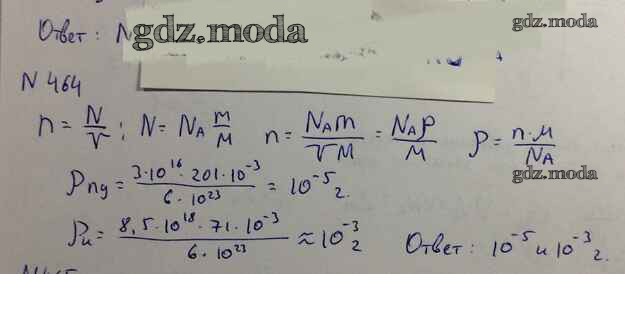 Ответ: N
gdz.moda
gdz.moda
N 464
n = N/V ; N = N_A m/M   n = N_A m/VM = N_A ρ/M   ρ = n·M/N_A
gdz.moda
ρ = 3·10^16 · 201·10^-3 / 6·10^23 = 10^-5 г.
ρ_и = 8,5·10^18 · 71·10^-3 / 6·10^23 ≈ 10^-3 г   Ответ: 10^-5 и 10^-3 г.